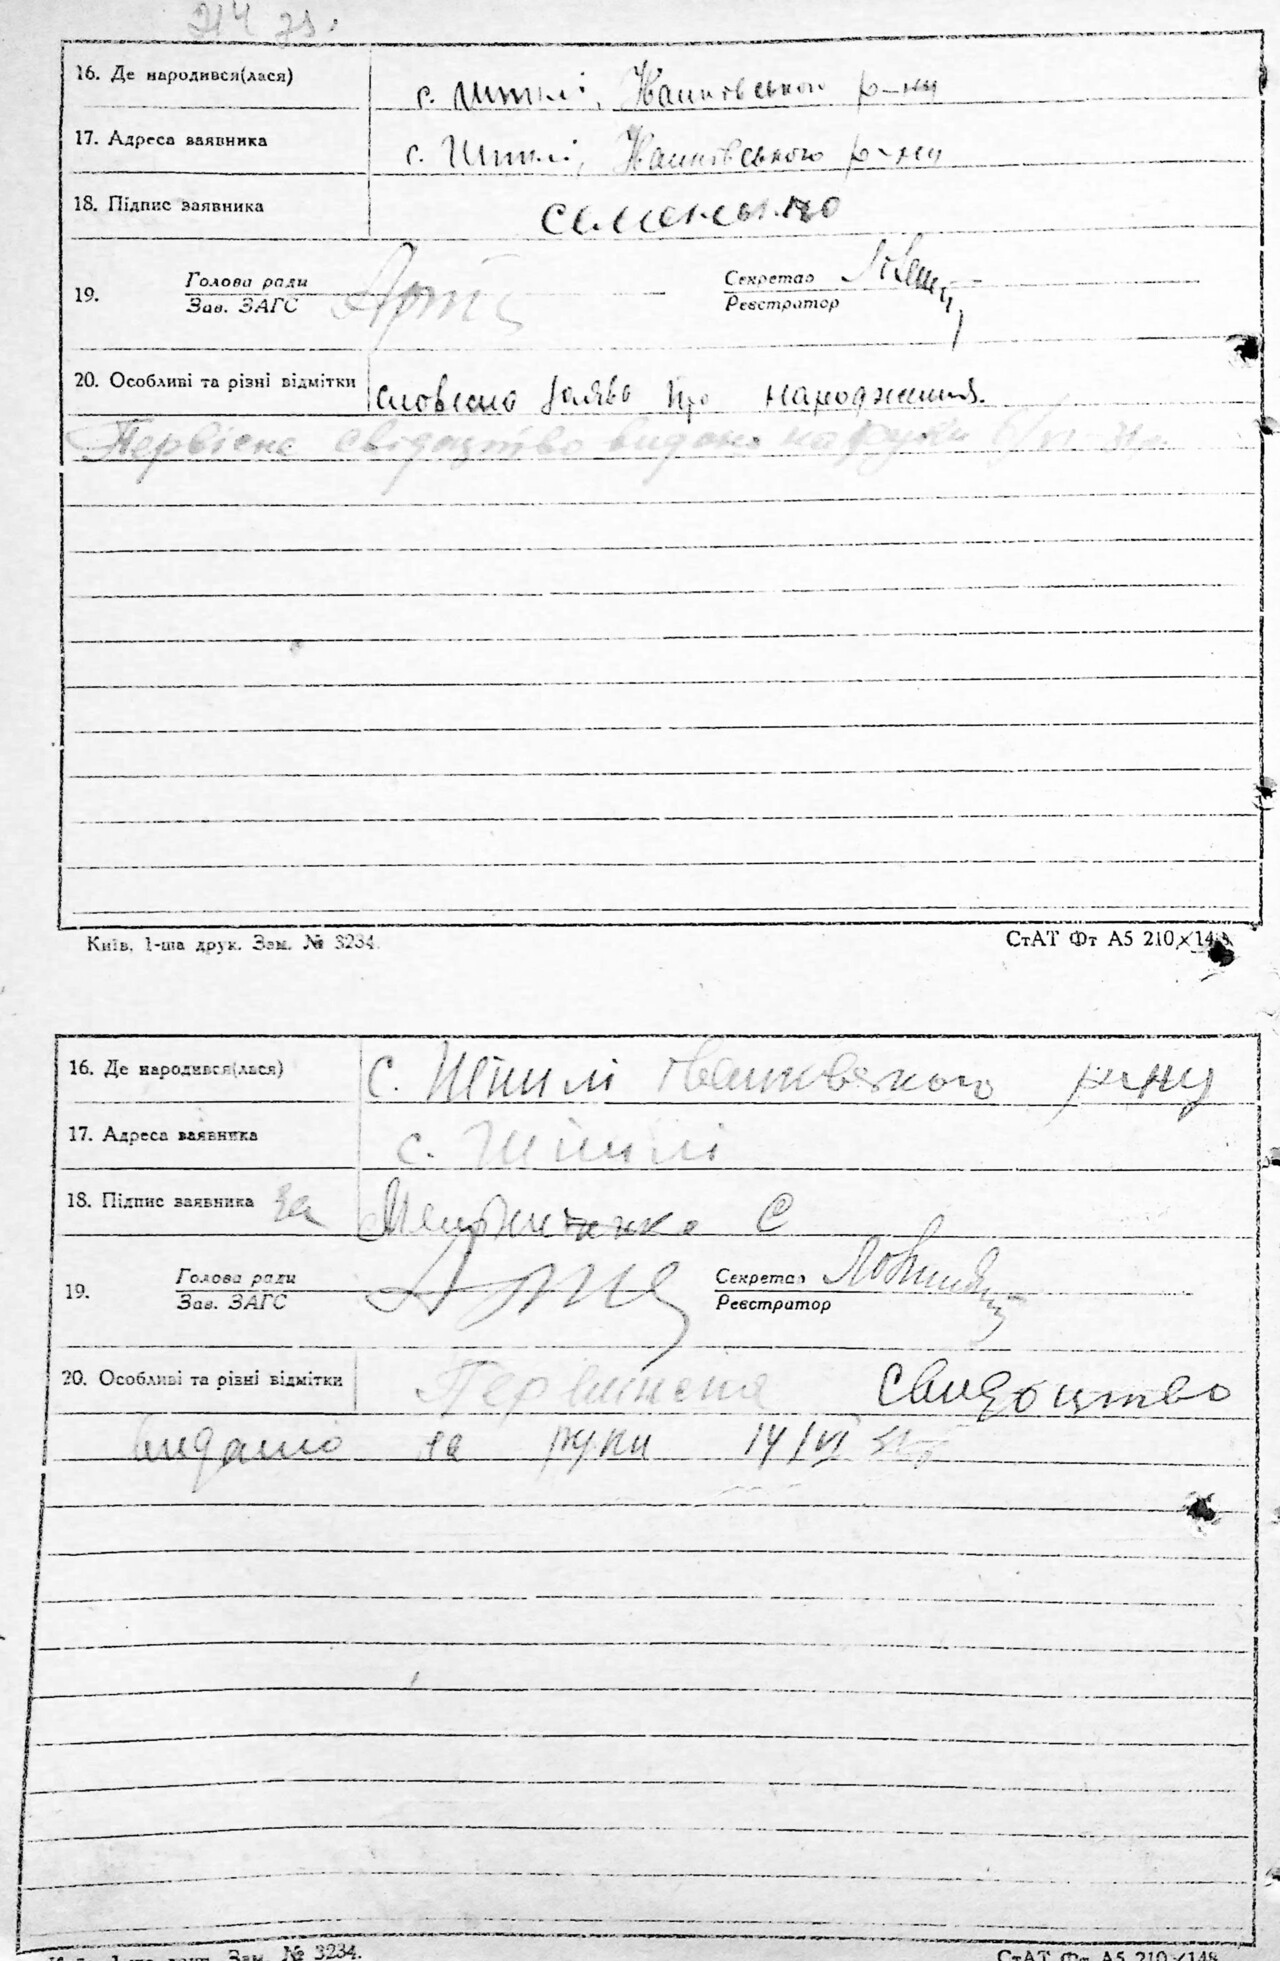 214 зв.
16. Де народився(лася) с. Шпилі, Іванківського р-ну
17. Адреса заявника с. Шпилі, Іванківського р-ну
18. Підпис заявника Семененко
19. Голова ради
Зав. ЗАГС
Секретар
Реєстратор
20. Особливі та різні відмітки словесна заява про народження.
Первісне свідоцтво видано на руки 6/VI-31р.
Київ, 1-ша друк. Зам. № 3234.
СтАТ Фт А5 210×148
16. Де народився(лася) с. Шпилі Іванковського р-ну
17. Адреса заявника с. Шпилі
18. Підпис заявника за С
19. Голова ради
Зав. ЗАГС
Секретар
Реєстратор
20. Особливі та різні відмітки свидоцтво
видано на руки 14/VI 31р
Зам. № 3234.
СтАТ Фт А5 210×148